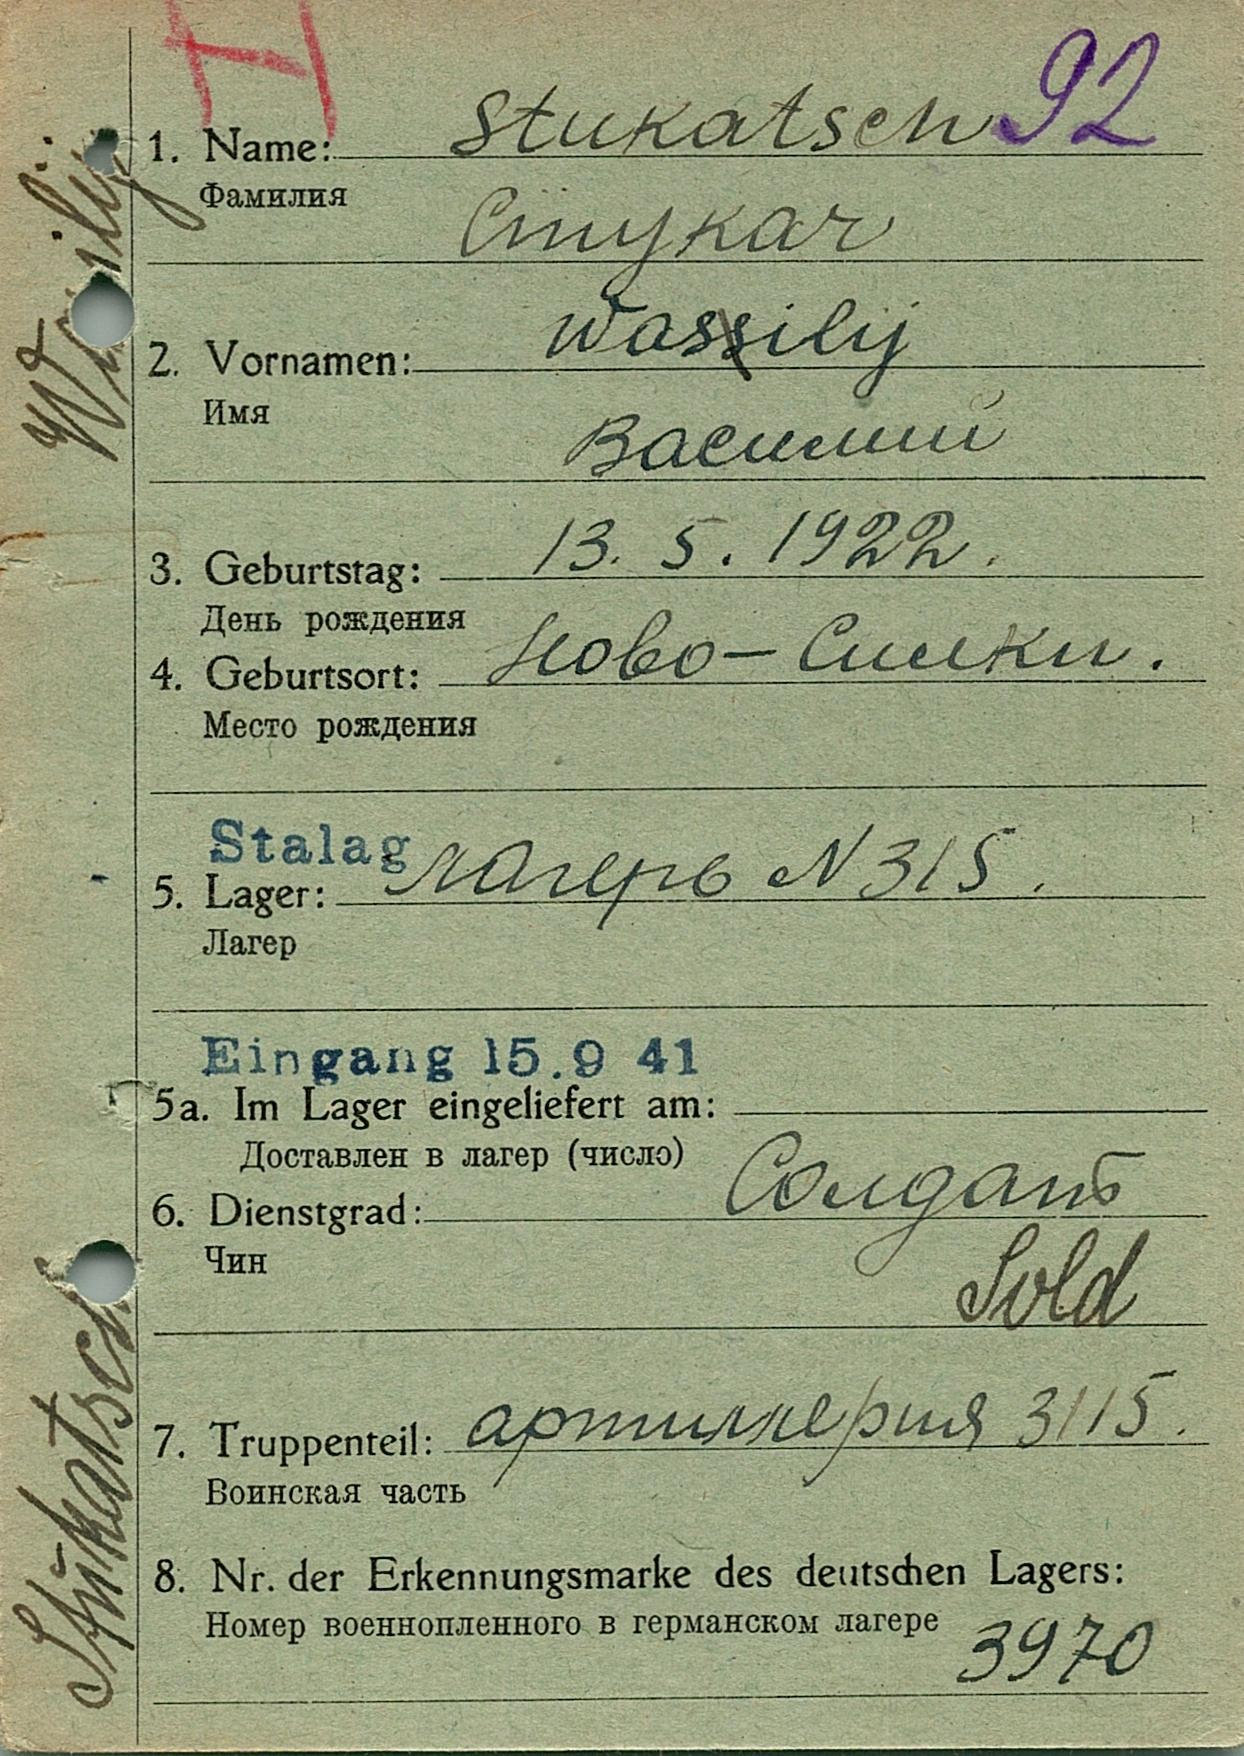 H
92
1. Name: Stukatsch
Фамилия
Стукач
2. Vornamen: Wassilij
Имя
Василий
3. Geburtstag: 13. 5. 1922.
День рождения
4. Geburtsort: Ново-Силки.
Место рождения
Stalag
5. Lager: лагерь N 315.
Лагер
Eingang 15.9 41
5a. Im Lager eingeliefert am:
Доставлен в лагер (число)
6. Dienstgrad: Солдатъ
Чин
Sold
7. Truppenteil: артиллерия 3115.
Воинская часть
8. Nr. der Erkennungsmarke des deutschen Lagers:
Номер военнопленного в германском лагере
3970
Stukatsch
Wasilij